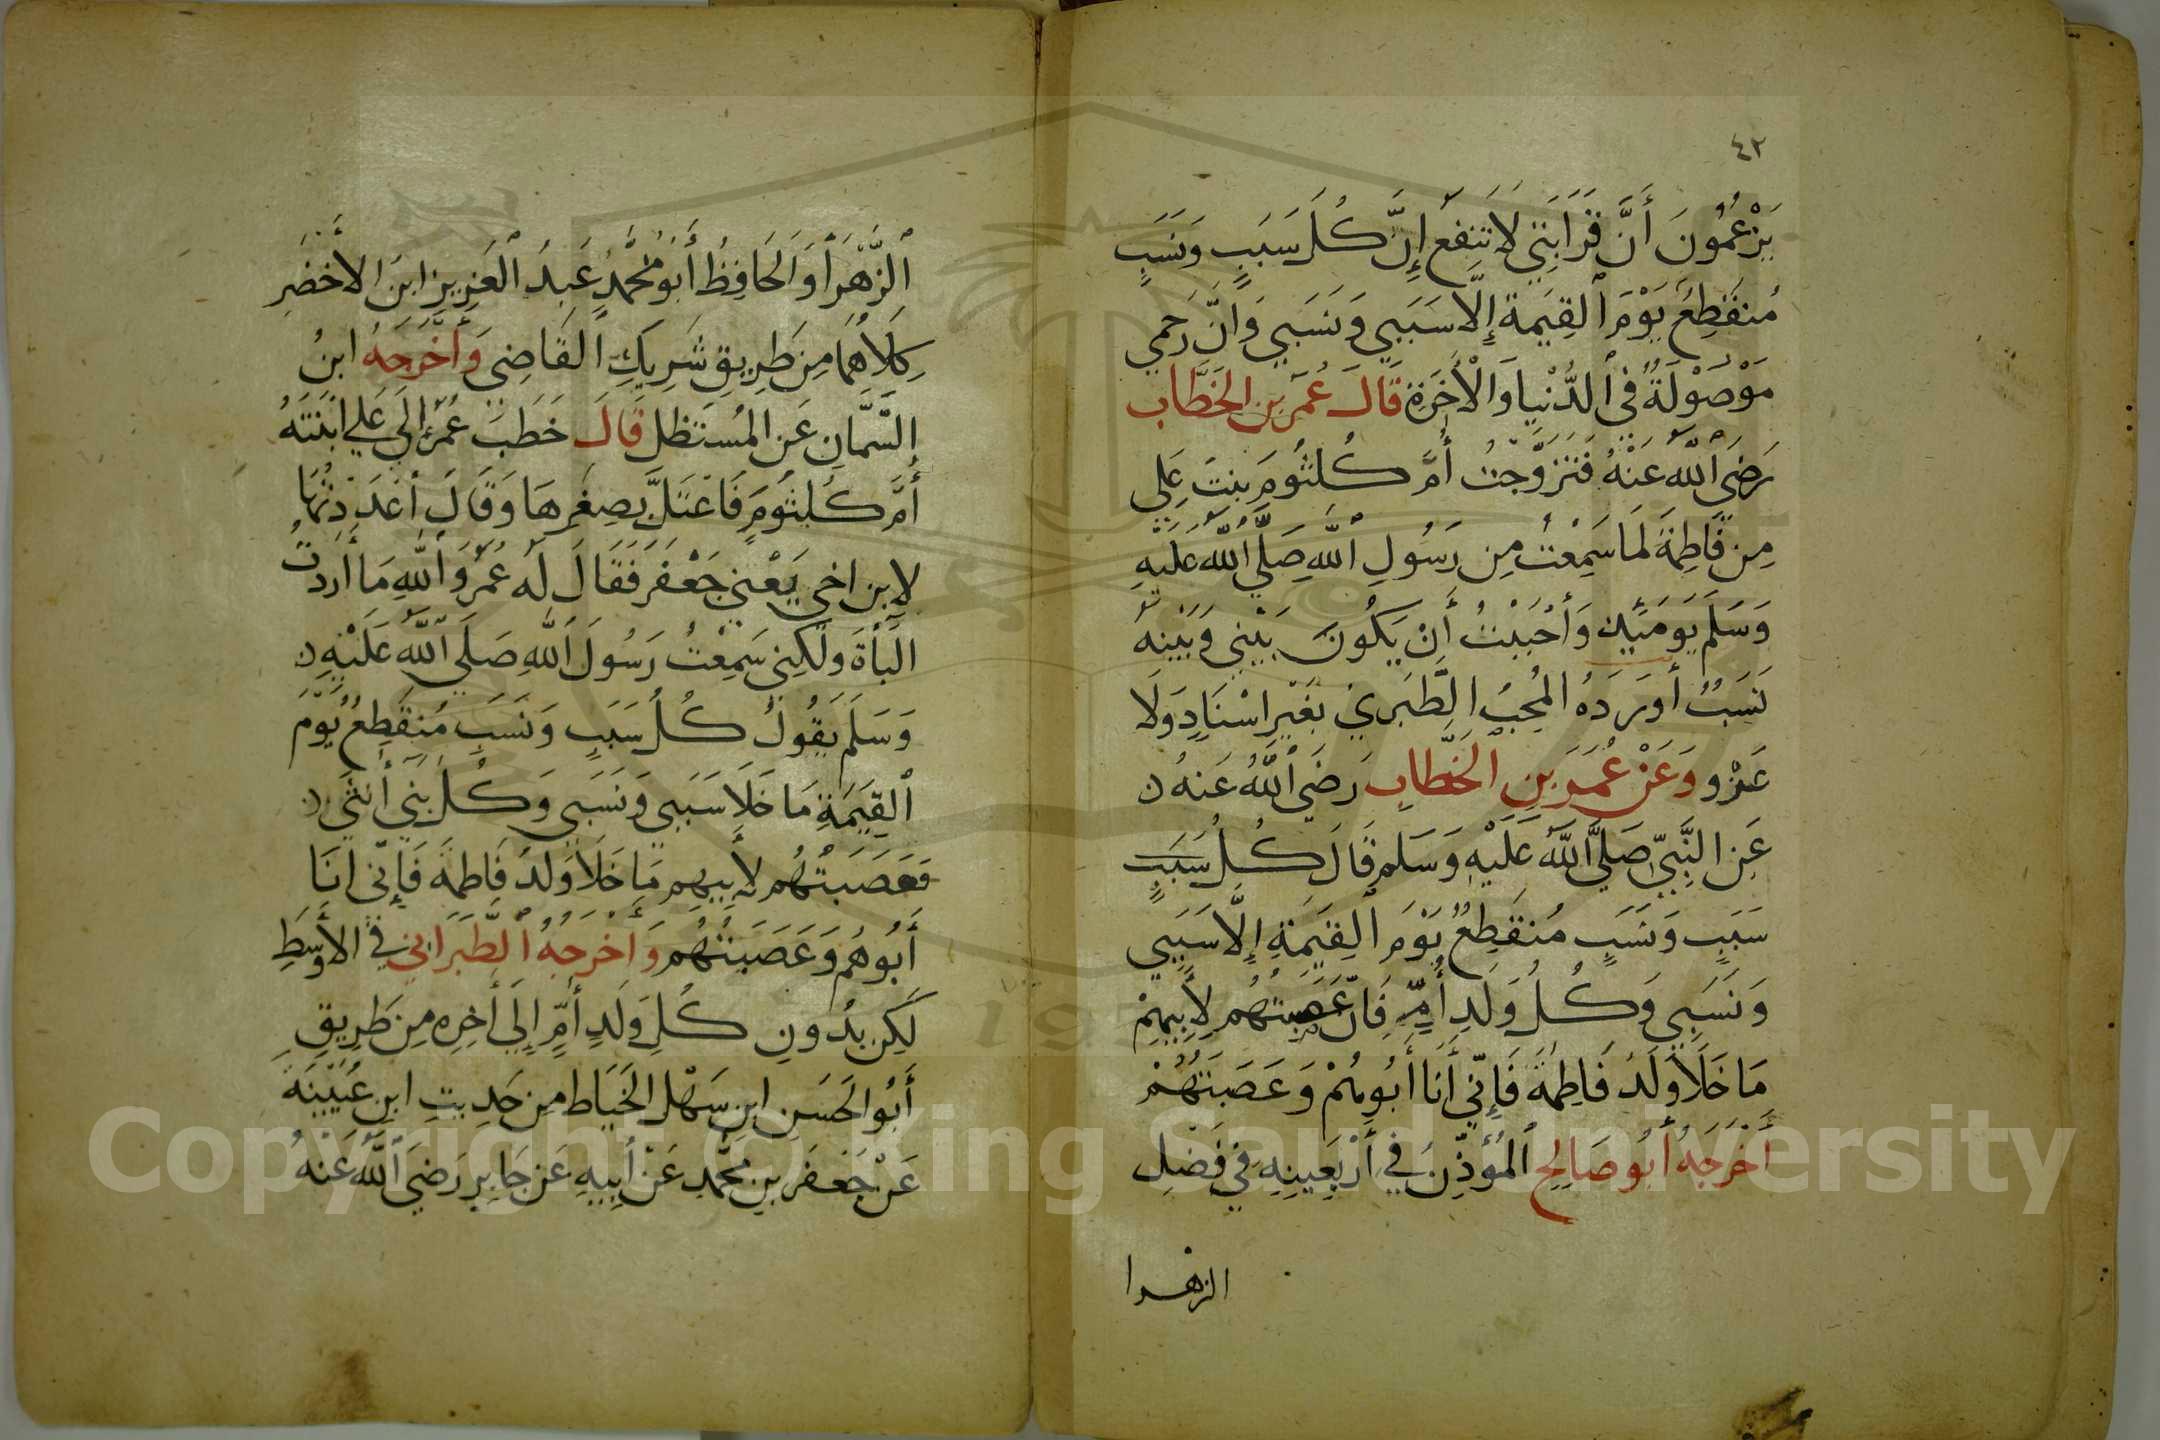 ٤٢
يَزْعُمُونَ أَنَّ قَرَابَتِي لَا تَنفَع إِنَّ كُلَّ سَبَبٍ وَنَسَبٍ
مُنقَطِعُ يَوْمَ ٱلقِيَمة إِلَّا سَبَبِي وَنَسَبِي وَانَّ رَحِمي
مَوْصُوْلَةُ في ٱلدُّنْيا وَالْأَخَرَة قَالَ عُمَر بن الخَطَّاب
رَضيَ ٱللَّه عَنْهُ فَتَزَوَّجتُ أُمَّ كُلثُومَ بنتَ عَلِي
مِن فَاطِمَةَ لَمَا سَمِعْت مِن رَسُولِ ٱللهِ صَلَّي ٱللَّه عَلَيْهِ
وَسَلَّم يَومَئِذٍ وَأَحْبَبْتُ أَنْ يَكُونَ بَيْنِي وَبَيْنِهُ
نَسَبُ أَورَدَهُ المُحِبُ الطَّبَرِيُ بِغَيْرِ اسْنَادٍ وَلَا
عَزْو وَعَنْ عُمَر بنِ الخَطَّابِ رَضَي ٱللَّهُ عَنهُ ن
عَنِ النَّبِيِّ صَلَّي ٱللَّه عَلَيْهِ وَسَلم قَالَ كُلُ سَبَبٍ
سَبَبٍ وَنَسَبٍ مُنقَطِعُ يَوْمَ ٱلقِيَمَةِ إِلَّا سَبَبِي
وَنَسَبِي وَكُلُ وَلَدِ أُمٍّ فَانَّ عَصَبتُهُم لِأَبِيهِمْ
مَا خَلَا وَلَدُ فَاطِمَةُ فَإِنِّي أَنَا أَبُوهُمْ وَعَصَبَتُهُمْ
أَخْرَجَهُ أَبُو صَالِحٍ ٱلمُؤَذِّنُ في أَرْبَعِينِهِ في فَضلِ
الزهرا
ٱلزَّهْرَأ وَالحَافِظُ أَبُو مُحَمَّدٍ عَبدُ ٱلعَزِيز ابنَ الأَخضَرِ
كِلَاهُمَا مِن طَرِيقِ شَرِيكٍ القَاضِي وَأَخْرَجَهُ ابنُ
السَّمَّانِ عَن المُستَظل قَالَ خَطَبَ عُمَرُ إلَي عَلي ابَنَتَهُ
أُمَّ كُلثُومٍ فَاعْتَلَّ بِصِغَرِهَا وَقَالَ أَعْدَدْتُهَا
لِإبن اخي يَعْنِي جَعْفَر فَقَالَ لَه عُمَرُ وَٱللَّهِ مَا أَرَدتُ
البَأَةَ ولَكِنِي سَمِعْتُ رَسُولَ ٱللَّهِ صَلَي ٱللَّهُ عَلَيْهِ ن
وَسَلَمَ يَقُولُ كُلُ سَبَبٍ وَنَسَبٍ مُنقَطِعُ يَوْمَ
ٱلقِيَمَةِ مَا خَلَا سَبَبِي وَنَسَبِي وَكُلُ بَنِي أُنثَى ن
فَعَصَبَتُهُم لأَبِيهِم مَا خَلَا وَلَدُ فَاطِمَةَ فَإِنِّي انَا
أَبُوهُم وَعَصَبَتُهُم وَأَخْرَجَهُ ٱلطَّبَرَانِي في الأَوسَطِ
لَكِن بدُونِ كُلِ وَلَدِ أُمٍّ إِلَى أَخِرِهِ مِن طَرِيقِ
أَبُو الحَسَن ابنِ سَهْل الخَيَاط مِن حَدِيثِ ابنِ عُيَيْنَة
عَنْ جَعفَر بنِ مُحَّمدٍ عَنْ أَبِيهِ عَن جَابِرٍ رَضيَ ٱللَّهُ عَنْهُ
Copyright © King Saud University